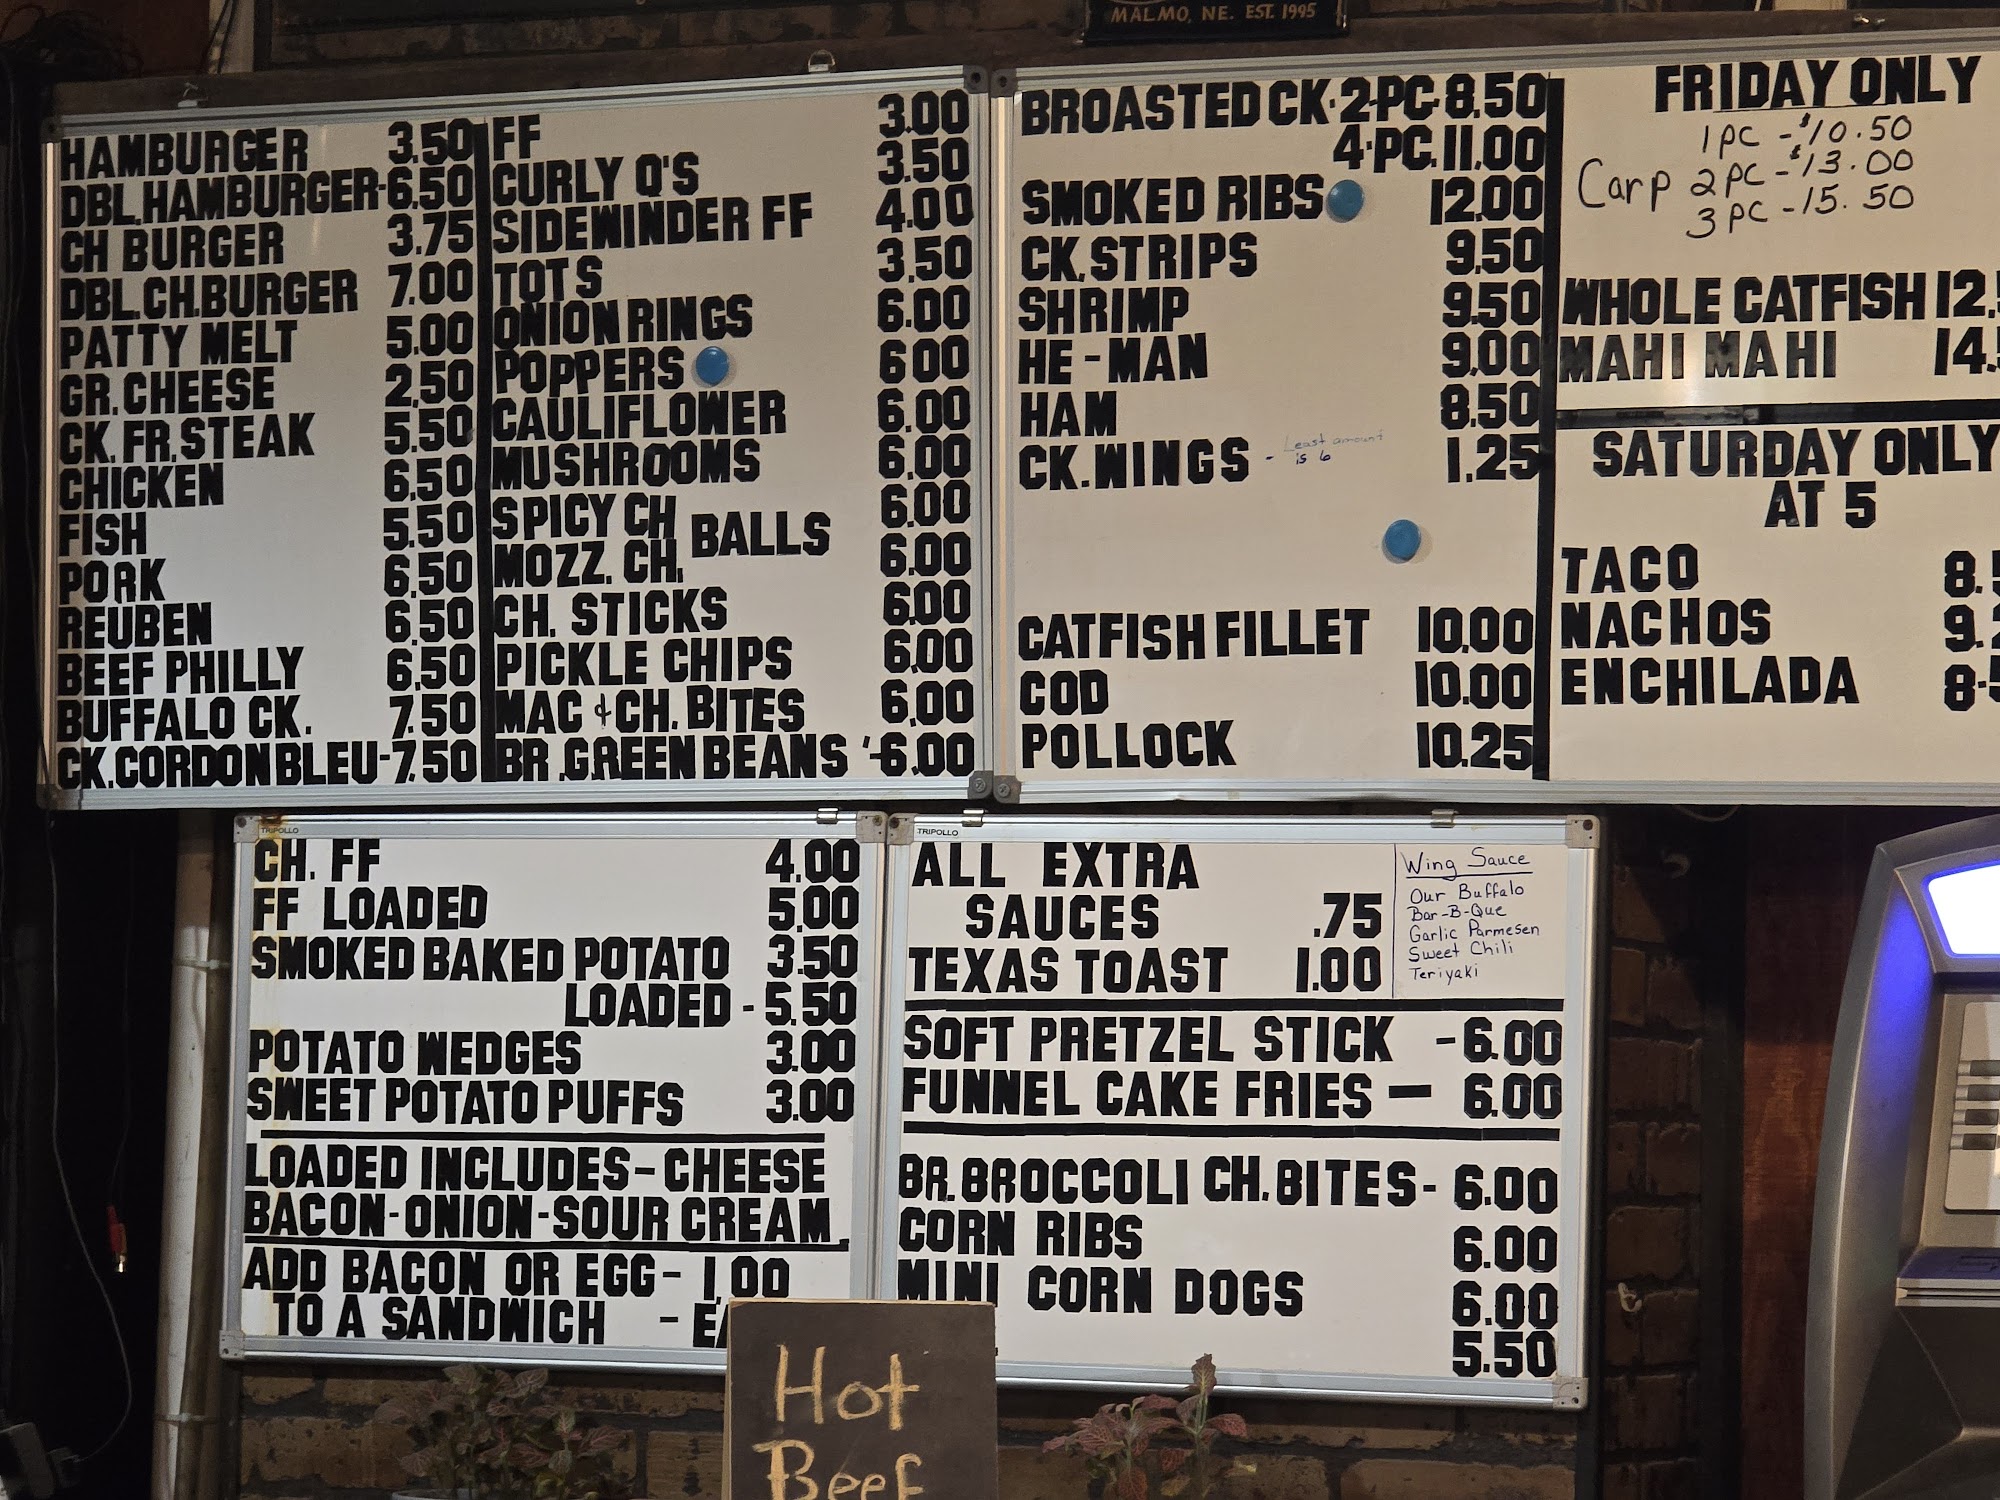 MALMO, NE. EST. 1995
HAMBURGER 3.50
DBL.HAMBURGER-6.50
CH BURGER 3.75
DBL.CH.BURGER 7.00
PATTY MELT 5.00
GR. CHEESE 2.50
CK. FR. STEAK 5.50
CHICKEN 6.50
FISH 5.50
PORK 6.50
REUBEN 6.50
BEEF PHILLY 6.50
BUFFALO CK. 7.50
CK.CORDON BLEU-7.50
FF 3.00
CURLY Q'S 3.50
SIDEWINDER FF 4.00
TOTS 3.50
ONION RINGS 6.00
POPPERS 6.00
CAULIFLOWER 6.00
MUSHROOMS 6.00
SPICY CH BALLS 6.00
MOZZ. CH. 6.00
CH. STICKS 6.00
PICKLE CHIPS 6.00
MAC & CH. BITES 6.00
BR. GREEN BEANS -6.00
BROASTED CK·2·PC·8.50
4·PC.11.00
SMOKED RIBS 12.00
CK. STRIPS 9.50
SHRIMP 9.50
HE-MAN 9.00
HAM 8.50
CK. WINGS - Least amount is 6 1.25
CATFISH FILLET 10.00
COD 10.00
POLLOCK 10.25
FRIDAY ONLY
1 pc - $10.50
Carp 2 pc - $13.00
3 pc - 15.50
WHOLE CATFISH 12.
MAHI MAHI 14.
SATURDAY ONLY
AT 5
TACO 8.
NACHOS 9.
ENCHILADA 8-
TRIPOLLO
CH. FF 4.00
FF LOADED 5.00
SMOKED BAKED POTATO 3.50
LOADED - 5.50
POTATO WEDGES 3.00
SWEET POTATO PUFFS 3.00
LOADED INCLUDES-CHEESE
BACON-ONION-SOUR CREAM.
ADD BACON OR EGG- 1.00
TO A SANDWICH -
TRIPOLLO
ALL EXTRA
SAUCES .75
TEXAS TOAST 1.00
Wing Sauce
Our Buffalo
Bar-B-Que
Garlic Parmesen
Sweet Chili
Teriyaki
SOFT PRETZEL STICK -6.00
FUNNEL CAKE FRIES — 6.00
BR. BROCCOLI CH. BITES- 6.00
CORN RIBS 6.00
MINI CORN DOGS 6.00
5.50
Hot
Beef